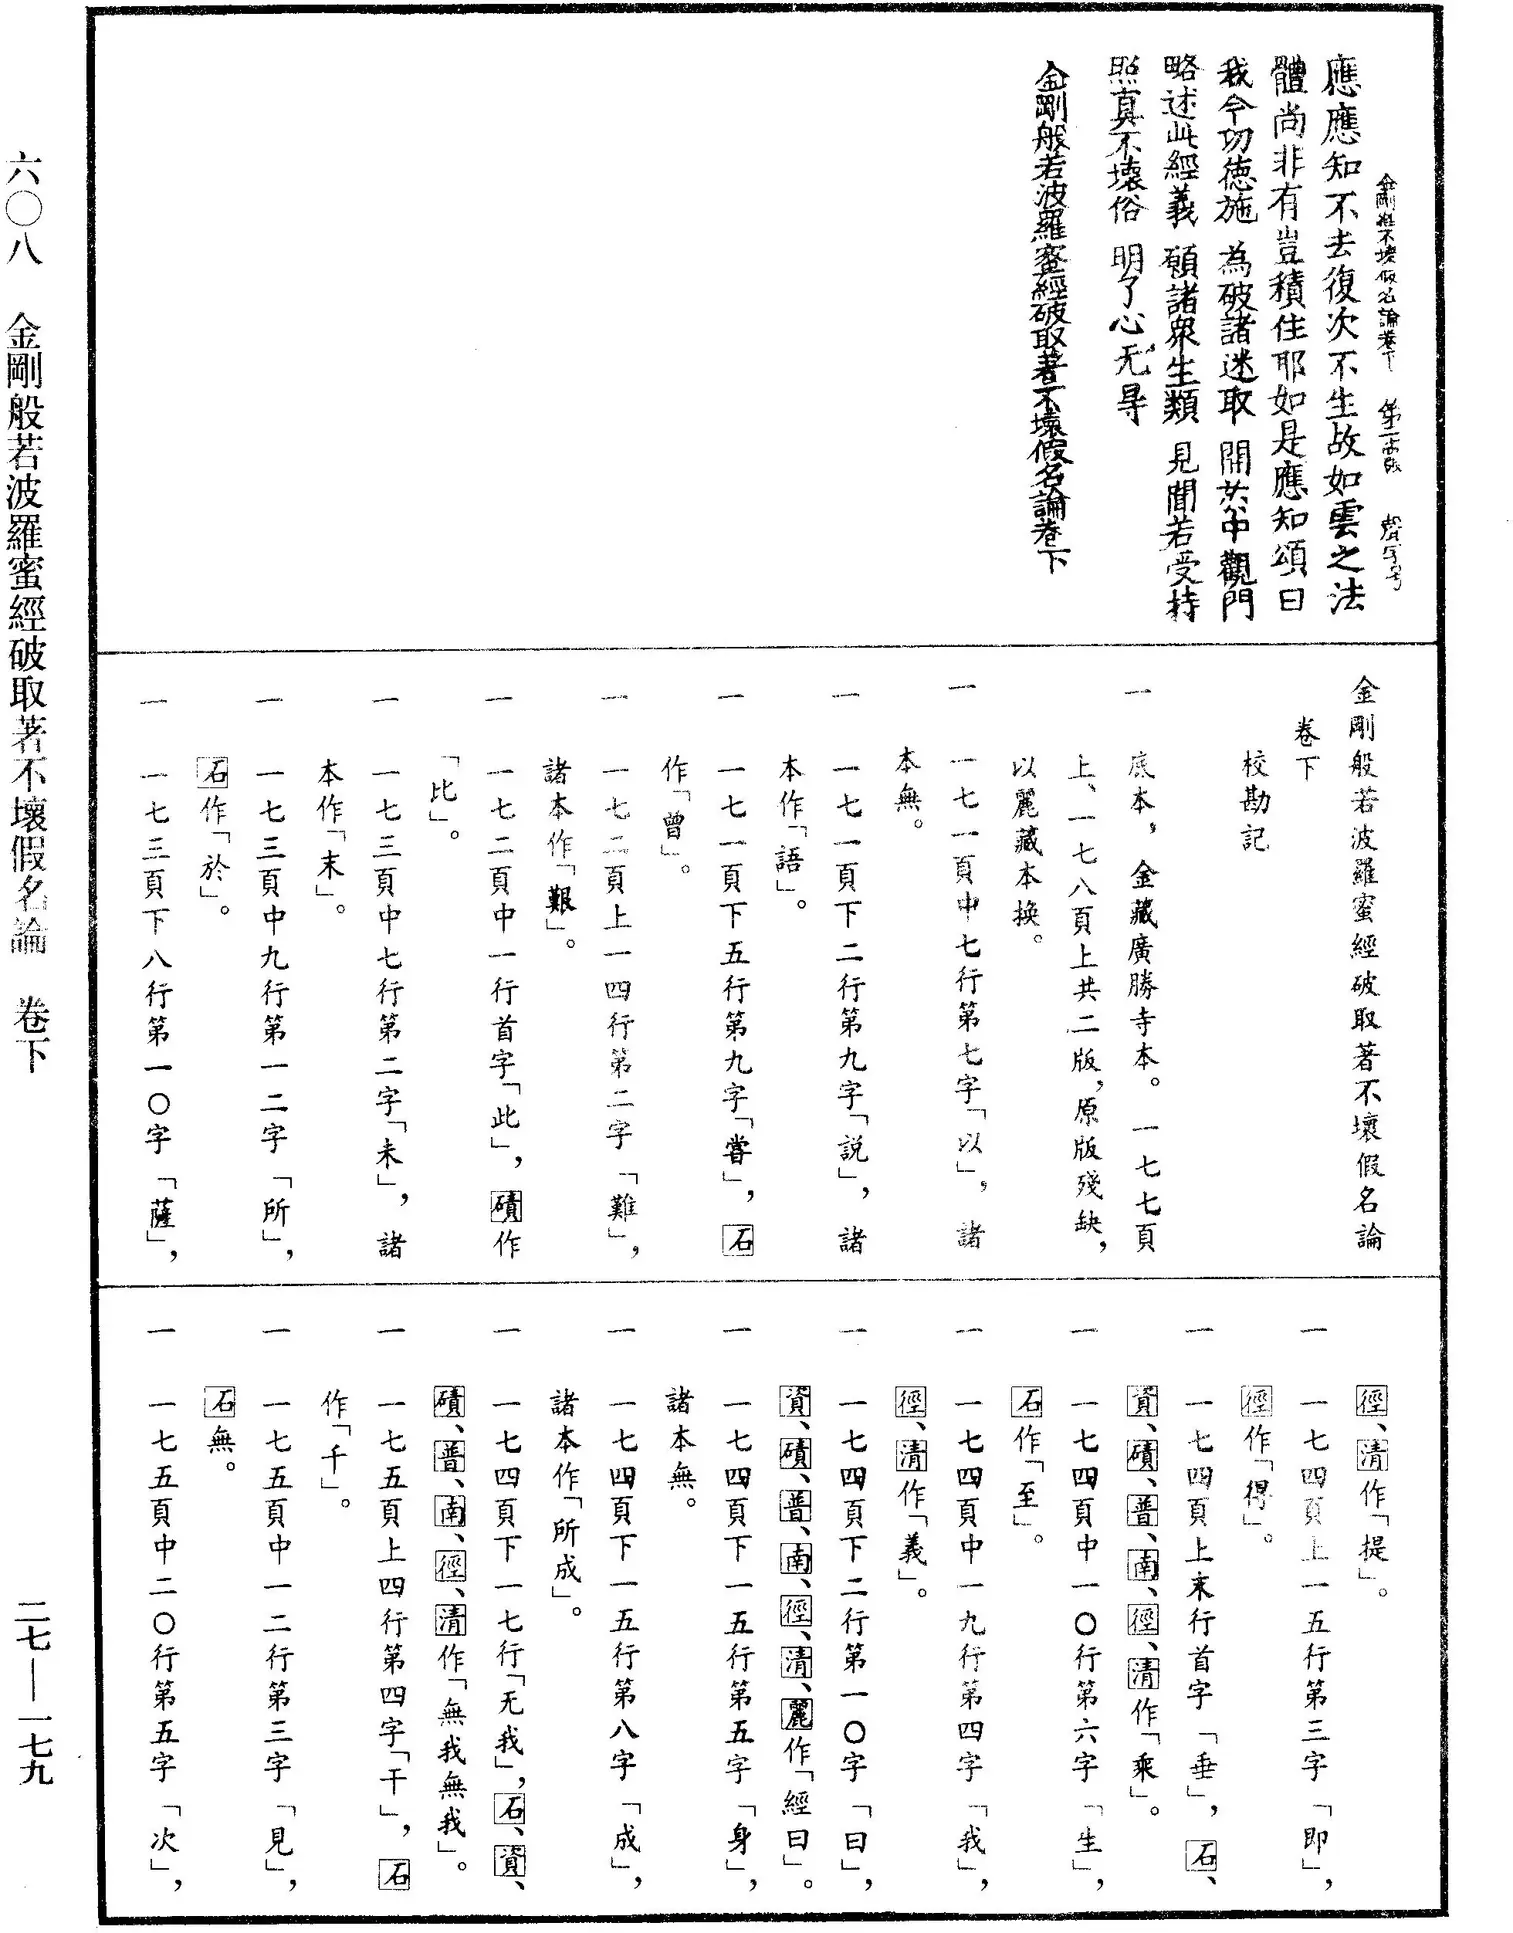 金剛經不壞假名論卷下 第二十張 聲字号
應應知不去復次不生故如雲之法
體尚非有豈積住耶如是應知頌曰
我今功德施 為破諸迷取 開於中觀門
略述此經義 願諸衆生類 見聞若受持
照真不壞俗 明了心无㝵
金剛般若波羅蜜經破取著不壞假名論卷下
金剛般若波羅蜜經破取著不壞假名論
卷下
校勘記
一 底本，金藏廣勝寺本。一七七頁
上、一七八頁上共二版，原版殘缺，
以麗藏本換。
一 一七一頁中七行第七字「以」，諸
本無。
一 一七一頁下二行第九字「説」，諸
本作「語」。
一 一七一頁下五行第九字「嘗」，石
作「曾」。
一 一七二頁上一四行第二字「難」，
諸本作「艱」。
一 一七二頁中一行首字「此」，磧作
「比」。
一 一七三頁中七行第二字「未」，諸
本作「末」。
一 一七三頁中九行第一二字「所」，
石作「於」。
一 一七三頁下八行第一〇字「薩」，
徑、清作「提」。
一 一七四頁上一五行第三字「即」，
徑作「得」。
一 一七四頁上末行首字「垂」，石、
資、磧、普、南、徑、清作「乘」。
一 一七四頁中一〇行第六字「生」，
石作「至」。
一 一七四頁中一九行第四字「我」，
徑、清作「義」。
一 一七四頁下二行第一〇字「曰」，
資、磧、普、南、徑、清、麗作「經曰」。
一 一七四頁下一五行第五字「身」，
諸本無。
一 一七四頁下一五行第八字「成」，
諸本作「所成」。
一 一七四頁下一七行「无我」，石、資、
磧、普、南、徑、清作「無我無我」。
一 一七五頁上四行第四字「干」，石
作「千」。
一 一七五頁中一二行第三字「見」，
石無。
一 一七五頁中二〇行第五字「次」，
六〇八 金剛般若波羅蜜經破取著不壞假名論 卷下 二七—一七九